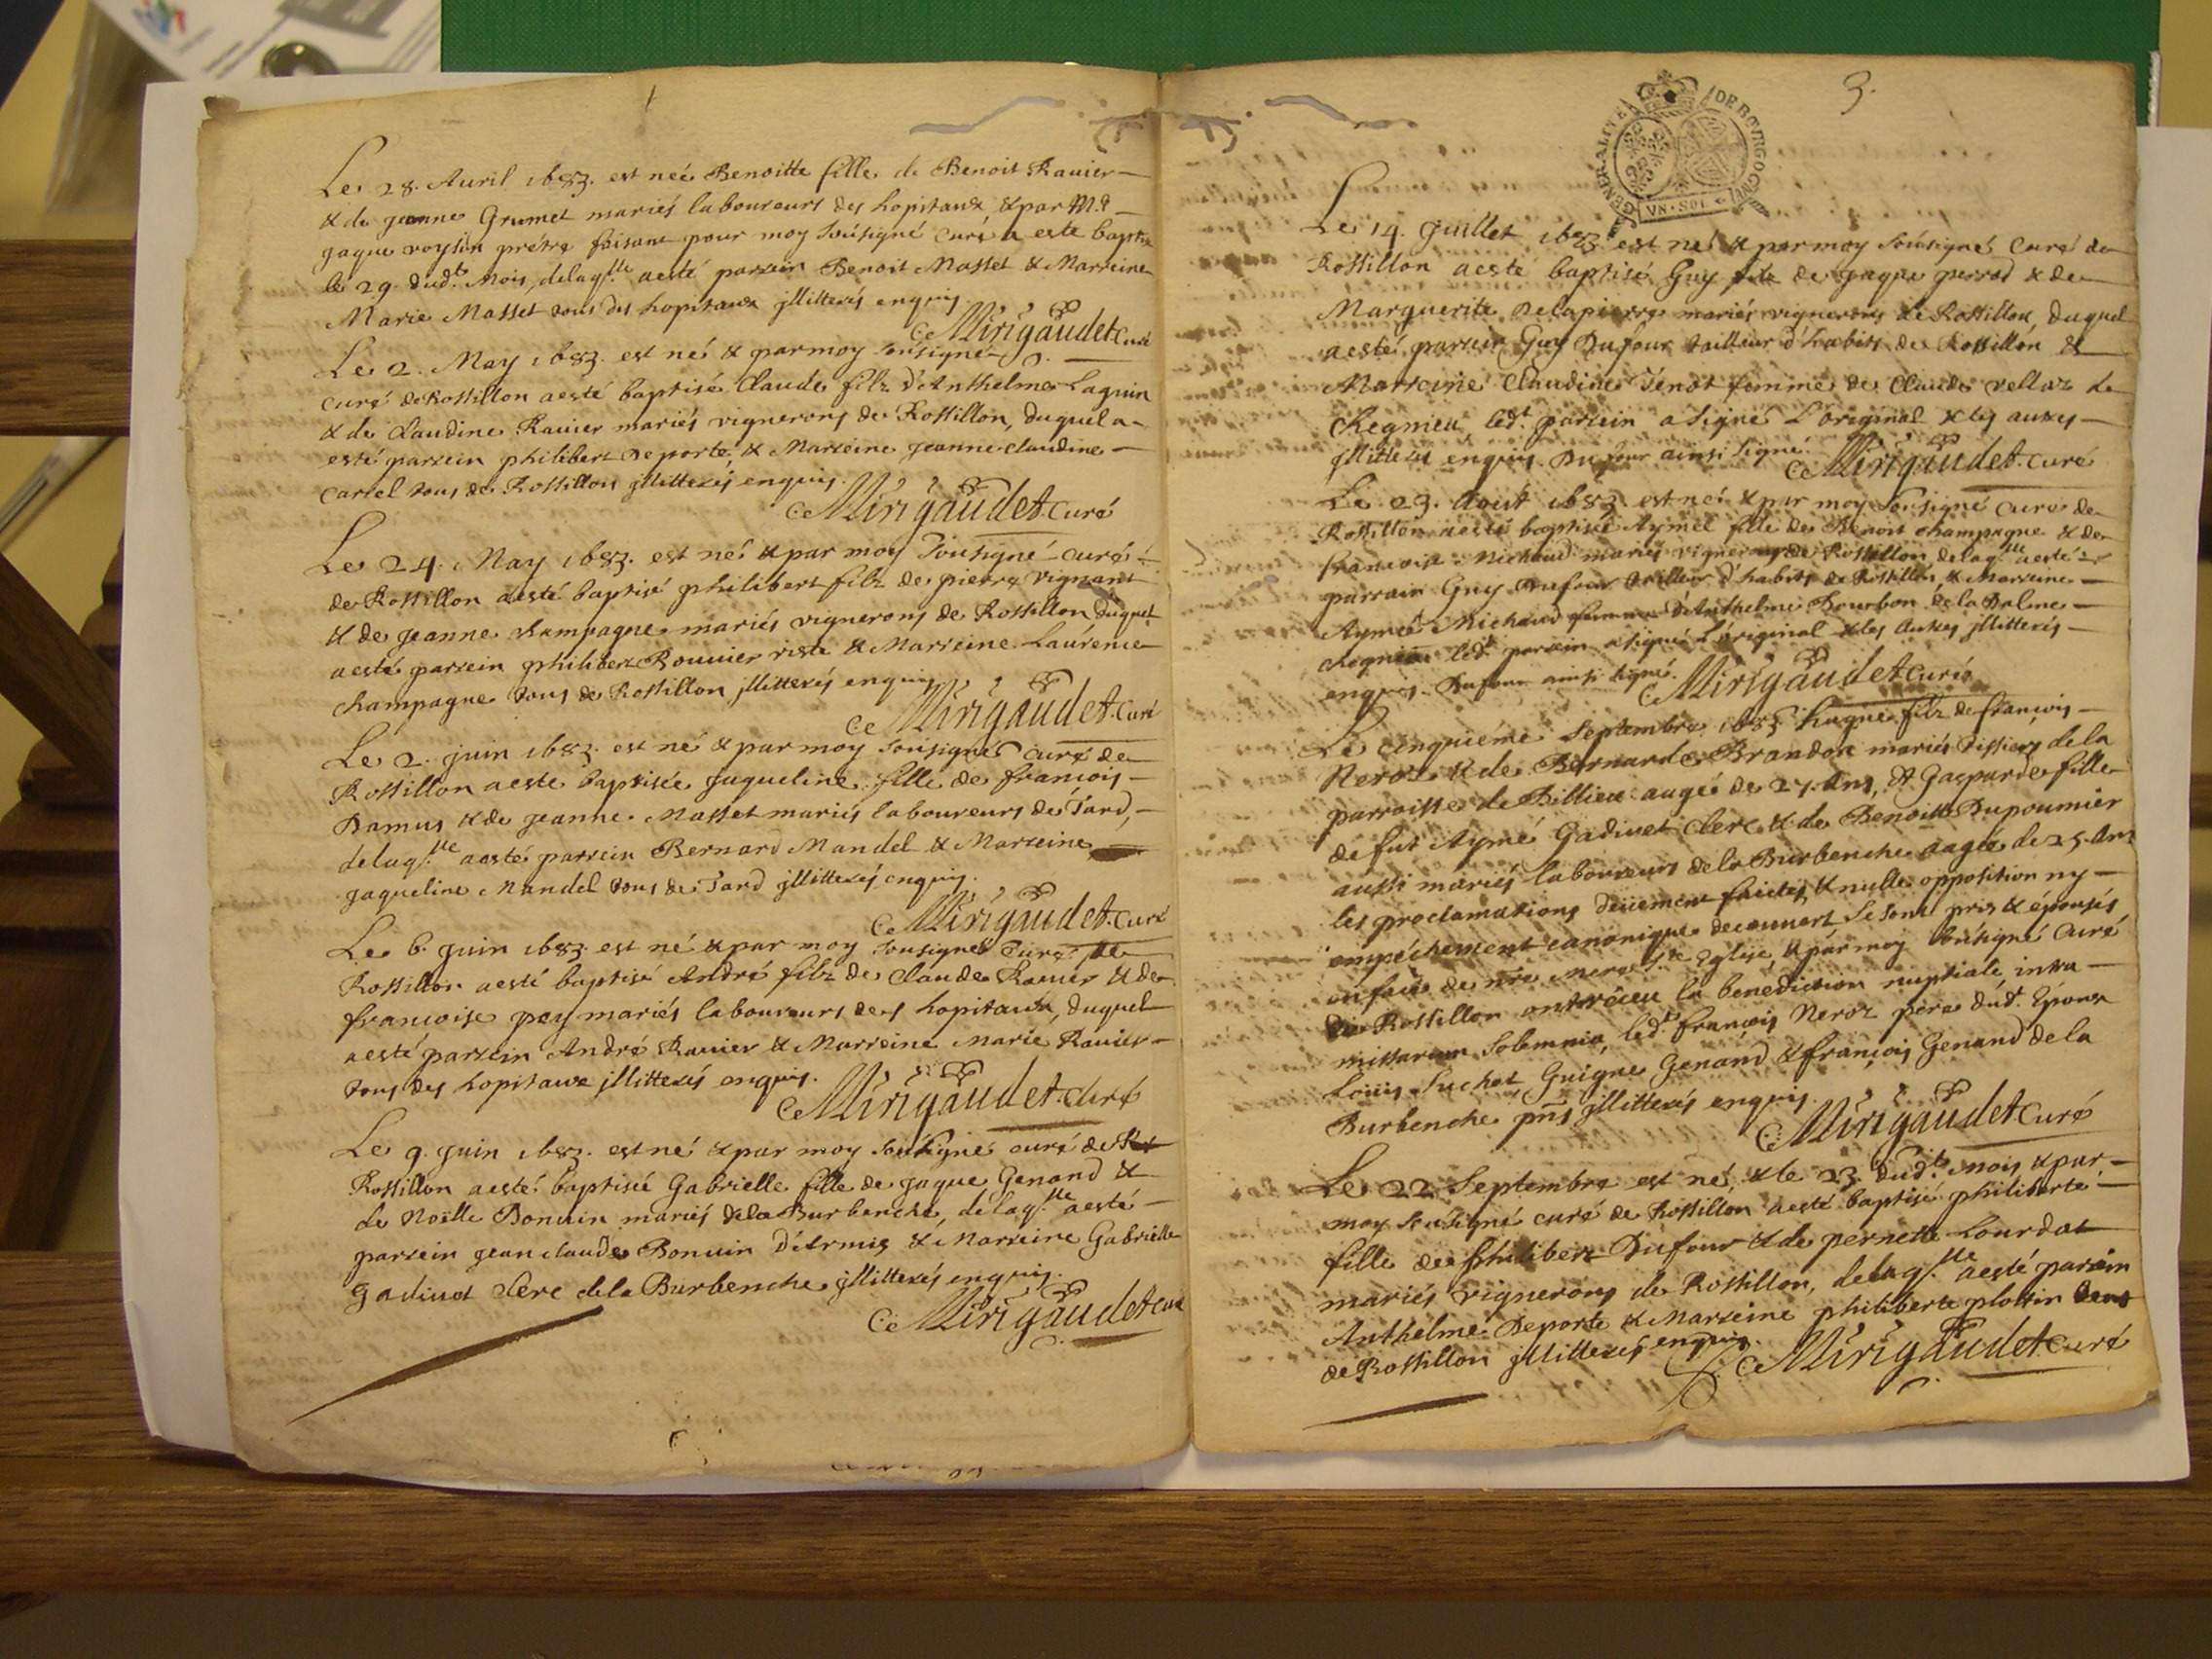 Le 28. Auril 1683. est neé Benoitte fille de Benoit Rauier
& de jeanne Grumet mariés laboureurs des hopitaux, & par M.e
jaque voysin prétre faisant pour moy soúsigné curé a esté baptisé
le 29. dud.t Mois, delaq.lle aesté parrein Benoit Masset & Marreine
Marie Masset tous des hopitaux jllitterés enquis.
Mirigaudet Curé
Le 2. May 1683. est né & par moy soúsigné
curé de Rossillon aesté baptisé Claude filz d'Anthelme Laguin
& de Claudine Rauier mariés vignerons de Rossillon, duquel a
esté parrein philibert Deporte, & Marreine jeanne claudine
Carrel tous de Rossillon jllitterés enquis.
Mirigaudet Curé
Le 24. May 1683. est né & par moy soúsigné curé
de Rossillon aesté baptisé philibert filz de pierre vignant
& de jeanne champagne mariés vignerons de Rossillon duquel
aesté parrein philibert Rouuier & Marreine Laúrence
champagne tous de Rossillon jllitterés enquis
Mirigaudet Curé
Le 2. juin 1683. est né & par moy soúsigné curé de
Rossillon aesté baptisée jaqueline fille de françois
Damus & de jeanne Masset mariés laboureurs de Tard,
delaq.lle aesté parrein Bernard Mandel & Marreine
jaqueline Mandel tous de Tard jllitterés enquis.
Mirigaudet Curé
Le 6. juin 1683. est né & par moy soúsigné Curé de
Rossillon aesté baptisé André filz de Claude Rauier & de
françoise pey mariés laboureurs des hopitaux, duquel
aesté parrein André Rauier & Marreine Marie Rauier
tous des hopitaux jllitterés enquis.
Mirigaudet Curé
Le 9. juin 1683. est né & par moy soúsigné curé de
Rossillon aesté baptisée Gabrielle fille de jaque Genand &
de Noëlle Bonuin mariés dela Burbenche, delaq.lle aesté
parrein jean claude Bonuin d'Armis & Marreine Gabrielle
Gadiuet Clerc dela Burbenche jllitterés enquis.
Mirigaudet Curé
3.
GENERALITE DE BOVRGOGNE
VN·SOL
Le 14. juillet 1683 est né & par moy soúsigné Curé de
Rossillon aesté baptisé Guy filz de jaque perrod & de
Marguerite Delapierre mariés vignerons de Rossillon, duquel
aesté parrein Guy Dufour tailleur d'habits de Rossillon &
Marreine Claudine Tenot femme de Claude vellaz de
Chegnieu led.t parrein a signé L'original & les autres
jllitterés enquis Dufour ainsi signé.
Mirigaudet curé
Le 29. Aoúst 1683 est né & par moy soúsigné curé de
Rossillon aesté baptisée Aymée fille de Benoit champagne & de
francoise Michaud mariés vignerons de Rossillon delaq.lle aesté
parrain Guy Dufour tailleur d'habits de Rossillon, & Marreine
Aymée Michaud femme d'Anthelme Bourbon dela Balme
chegnieu led.t parrein a signé L'original & les autres jllitterés
enquis. Dufour ainsi signé.
Mirigaudet Curé
Le cenquiéme Septembre 1683 hugue filz de françois
Neroz & de Bernarde Brandon mariés tissiers dela
parroisse de Billieu aagé de 27. Ans, & Gasparde fille
de fut Aymé Gadiuet Clerc & de Benoitte Dupoumier
aussi mariés laboureurs dela Burbenche aagée de 25. Ans
les proclamations dúement faictes & nulle opposition ny
empéchement canonique decouuert se sont pris & épousés
en face de nre Mere S.te Eglise, & par moy soúsigné Curé
de Rossillon ont réceu la benediction nuptiale intra
missarum solemnia, led.t françois Neroz pére dúd.t Epoux
Loúis Suchet, Guigue Genand & françois Genand dela
Burbenche pnts jllitterés enquis.
Mirigaudet Curé
Le 22. Septembre est né, & le 23. dud.t mois & par
moy soúsigné curé de Rossillon aesté baptisé philiberte
fille de philibert Dufour & de pernette Lourdat
mariés vignerons de Rossillon, delaq.lle aesté parrein
Anthelme Deporte & Marreine philiberte plottin
de Rossillon jllitterés enquis.
Mirigaudet Curé